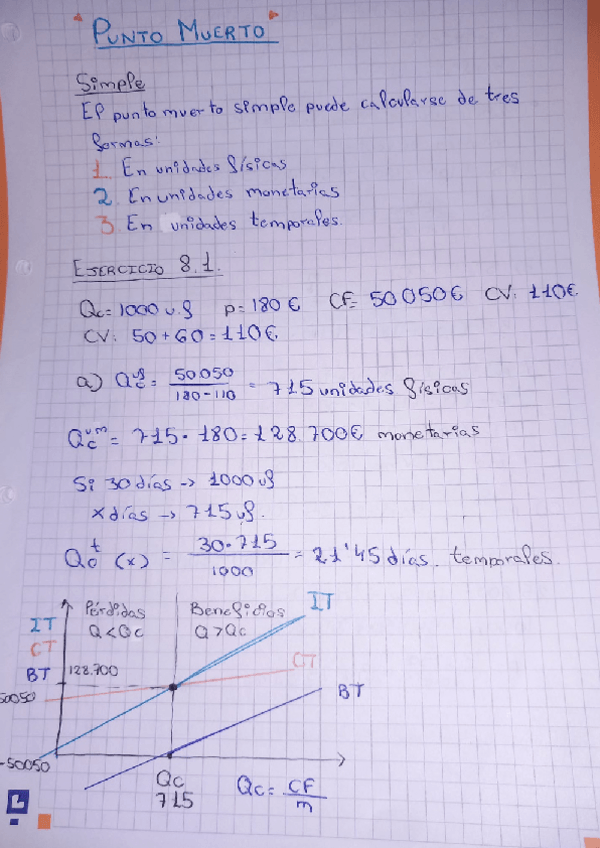 "PUNTO MUERTO"
Simple
El punto muerto simple puede calcularse de tres
formas:
1. En unidades físicas
2. En unidades monetarias
3. En unidades temporales.
EJERCICIO 8.1.
Qc = 1000 u.f p = 180 € CF = 50 050 € CV: 110€
CV: 50 + 60 = 110€
a) Qc^uf = 50050 / 180-110 = 715 unidades físicas
Qc^um = 715 · 180 = 128 700€ monetarias
Si 30 días -> 1000 uf
x días -> 715 uf.
Qo^t (x) = 30·715 / 1000 = 21'45 días. temporales.
IT
CT
BT
Pérdidas
Q < Qc
Beneficios
Q > Qc
IT
CT
BT
128.700
50050
-50050
Qc
715
Qc = CF / m